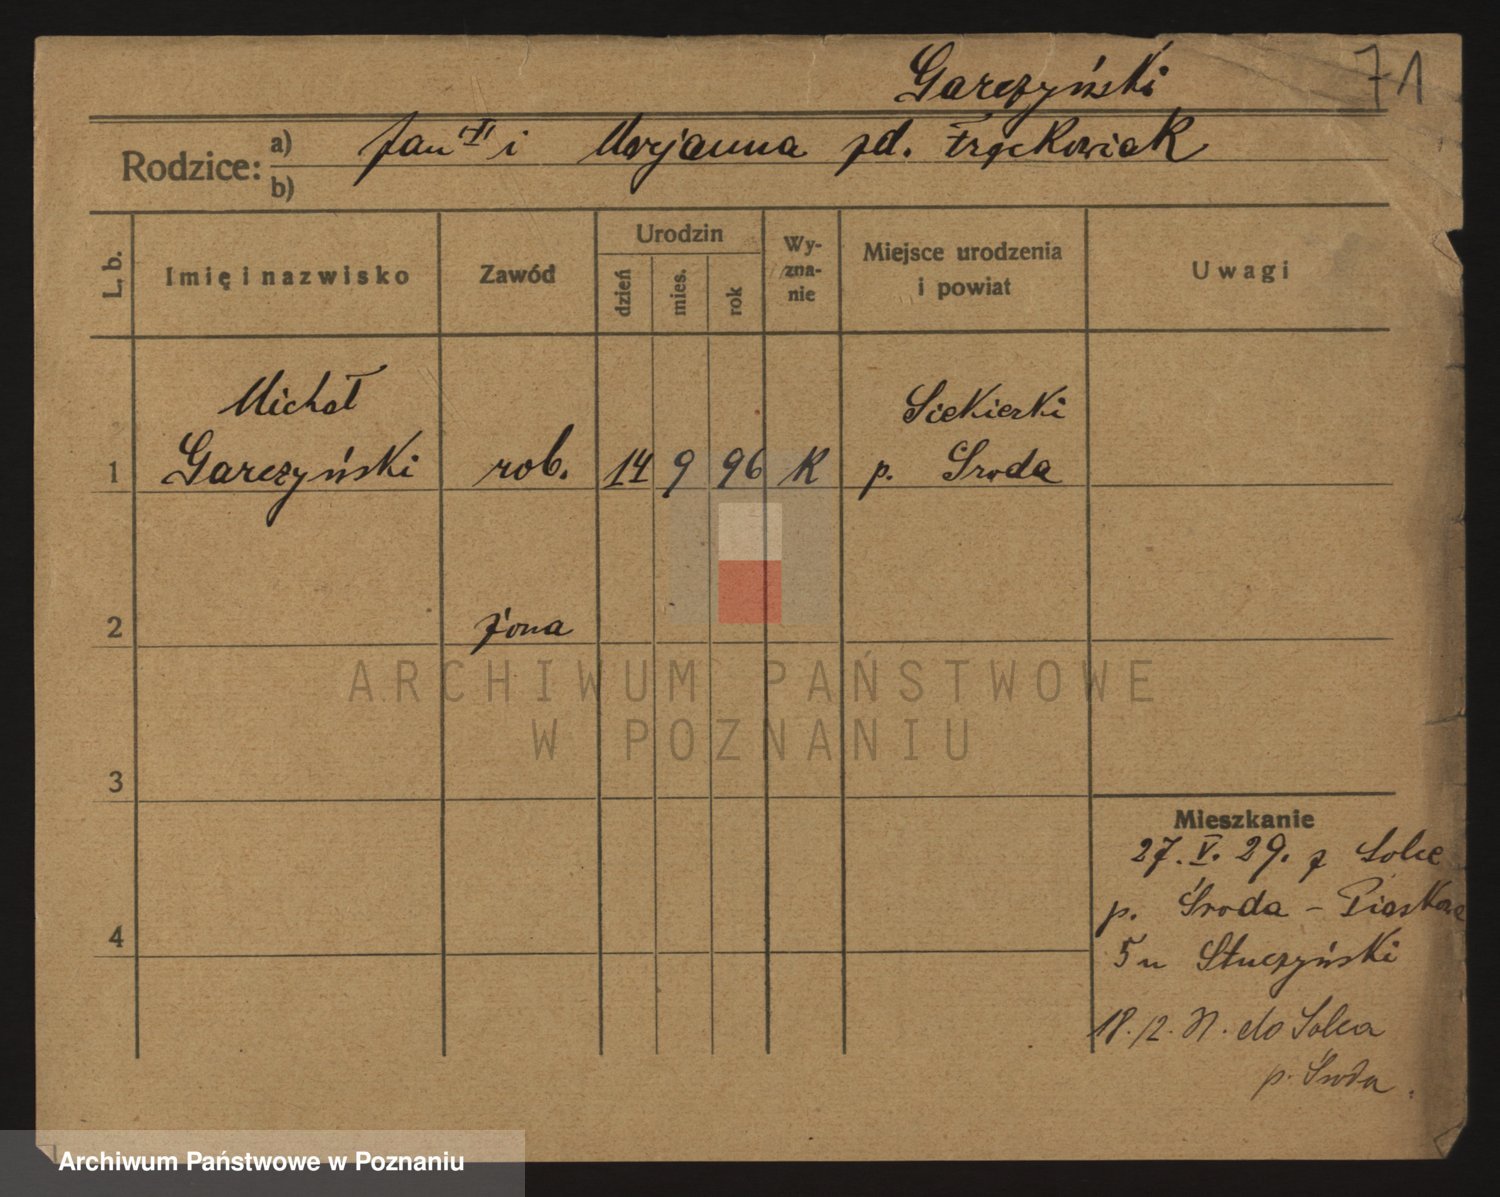 Garczyński
71
Rodzice: a) Jan i Marjanna zd. Frąckowiak
b)
L. b.
Imię i nazwisko
Zawód
Urodzin
dzień
mies.
rok
Wy-
zna-
nie
Miejsce urodzenia
i powiat
Uwagi
Michał Siekierki
1 Garczyński rob. 14 9 96 K p. Sroda
2 żona
3
4
Mieszkanie
27. V. 29. z Solce
p. Środa - Piaskowa
5 u Stuczyński
18./2. do Solca
p. Środa.
ARCHIWUM PAŃSTWOWE
W POZNANIU
Archiwum Państwowe w Poznaniu